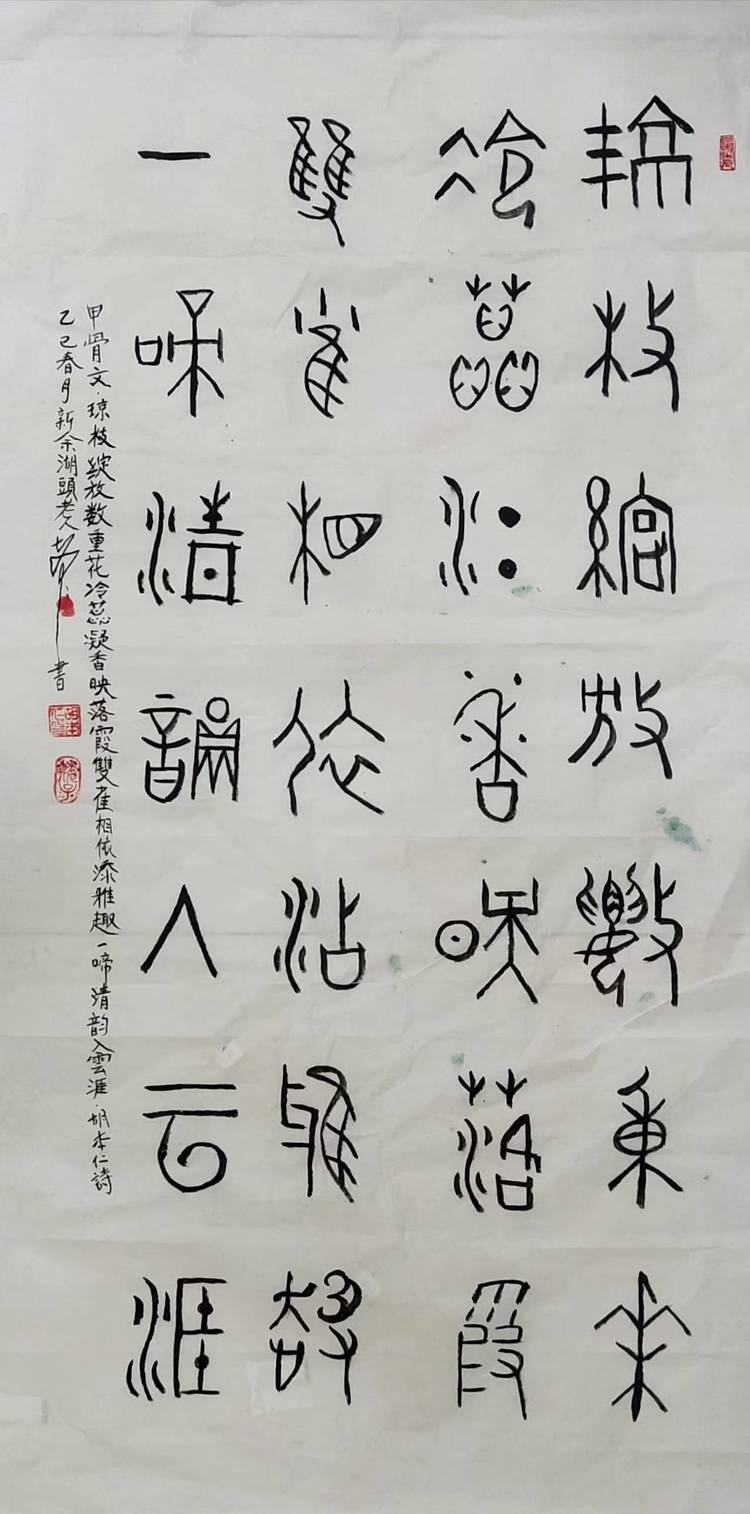 琼枝綻放数重花
冷蕊凝香映落霞
雙雀相依添雅趣
一啼清韵入云涯
甲骨文·琼枝綻放数重花冷蕊凝香映落霞雙雀相依添雅趣一啼清韵入雲涯·胡本仁詩
乙巳春月新余湖頭老人書